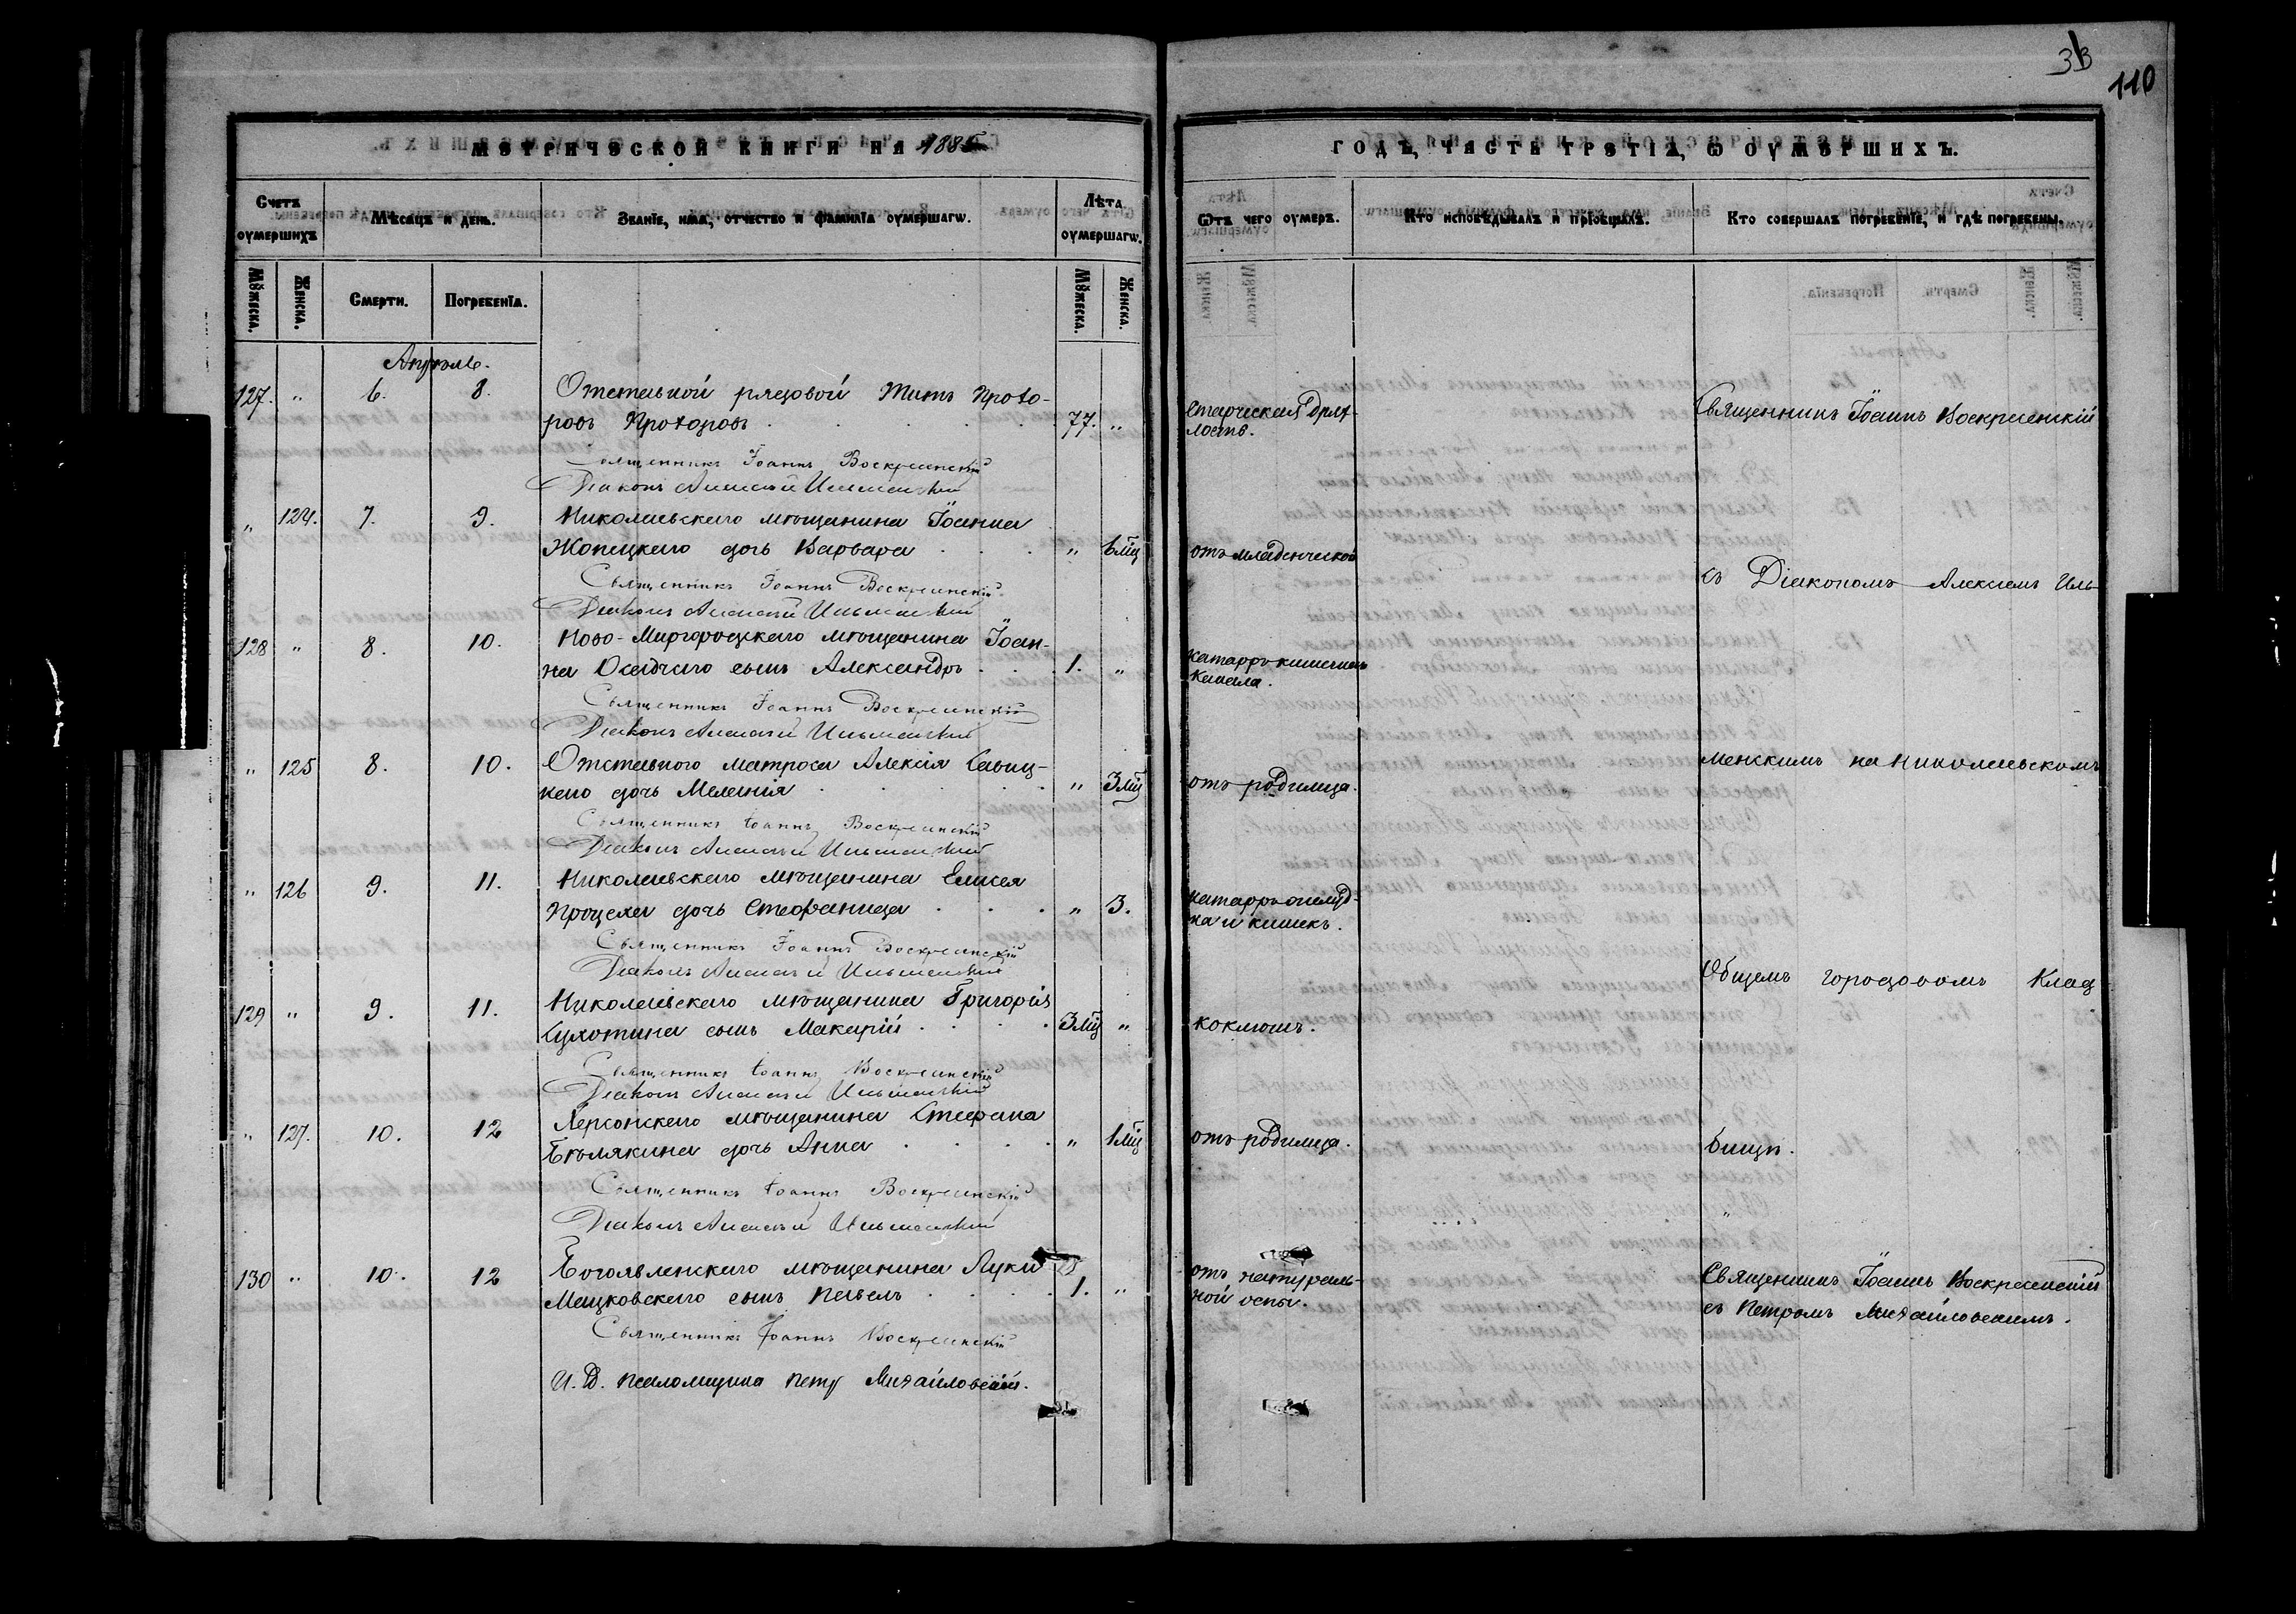 33
110
МЕТРИЧЕСКОЙ КНИГИ НА 1885
ГОДЪ, ЧАСТЬ ТРЕТІѦ, Ѡ ОУМЕРШИХЪ.
Счетъ оумершихъ
Мѣсяцъ и день.
Званіе, имя, отчество и фамиліа оумершагѡ.
Лѣта оумершагѡ.
Ѿтъ чего оумеръ.
Кто исповѣдывалъ и пріобщалъ.
Кто совершалъ погребеніе, и гдѣ погребены.
Мꙋжеска.
Женска.
Смерти.
Погребеніа.
Мꙋжеска.
Женска.
Апрѣль.
127. " 6. 8. Отставной рядовой Титъ Прохо-
ровъ Прохоровъ 77. "
Старческая дрях-
лость.
Священникъ Іоаннъ Воскресенскій
Священникъ Іоаннъ Воскресенскій
Діаконъ Алексѣй Ильменскій
" 124. 7. 9. Николаевскаго мѣщанина Іоанна
Жопецкаго дочь Варвара " 6 мц
отъ младенческой
Священникъ Іоаннъ Воскресенскій
Діаконъ Алексѣй Ильменскій
съ Діакономъ Алексіемъ Иль-
128 " 8. 10. Ново-Миргородскаго мѣщанина Іоан-
на Осадчаго сынъ Александръ 1. "
катарръ кишечнаго
канала.
Священникъ Іоаннъ Воскресенскій
Діаконъ Алексѣй Ильменскій
" 125 8. 10. Отставного матроса Алексія Савиц-
каго дочь Меланія " 3 мц
отъ родимца.
менскимъ на Николаевскомъ
Священникъ Іоаннъ Воскресенскій
Діаконъ Алексѣй Ильменскій
" 126 9. 11. Николаевскаго мѣщанина Елисея
Процема дочь Стефанида " 3.
катарръ желуд-
ка и кишекъ.
Священникъ Іоаннъ Воскресенскій
Діаконъ Алексѣй Ильменскій
Общемъ городовомъ Клад
129 " 9. 11. Николаевскаго мѣщанина Григорія
Сухотина сынъ Макарій 3 мц "
коклюшъ.
Священникъ Іоаннъ Воскресенскій
Діаконъ Алексѣй Ильменскій
" 127. 10. 12 Херсонскаго мѣщанина Стефана
Бѣлякина дочь Анна " 1 мц
отъ родимца.
бищѣ.
Священникъ Іоаннъ Воскресенскій
Діаконъ Алексѣй Ильменскій
130 " 10. 12 Богоявленскаго мѣщанина Луки
Мецковскаго сынъ Павелъ 1. "
отъ натураль-
ной оспы.
Священникъ Іоаннъ Воскресенскій
съ Петромъ Михайловскимъ.
Священникъ Іоаннъ Воскресенскій
И. Д. Псаломщика Петръ Михайловскій.